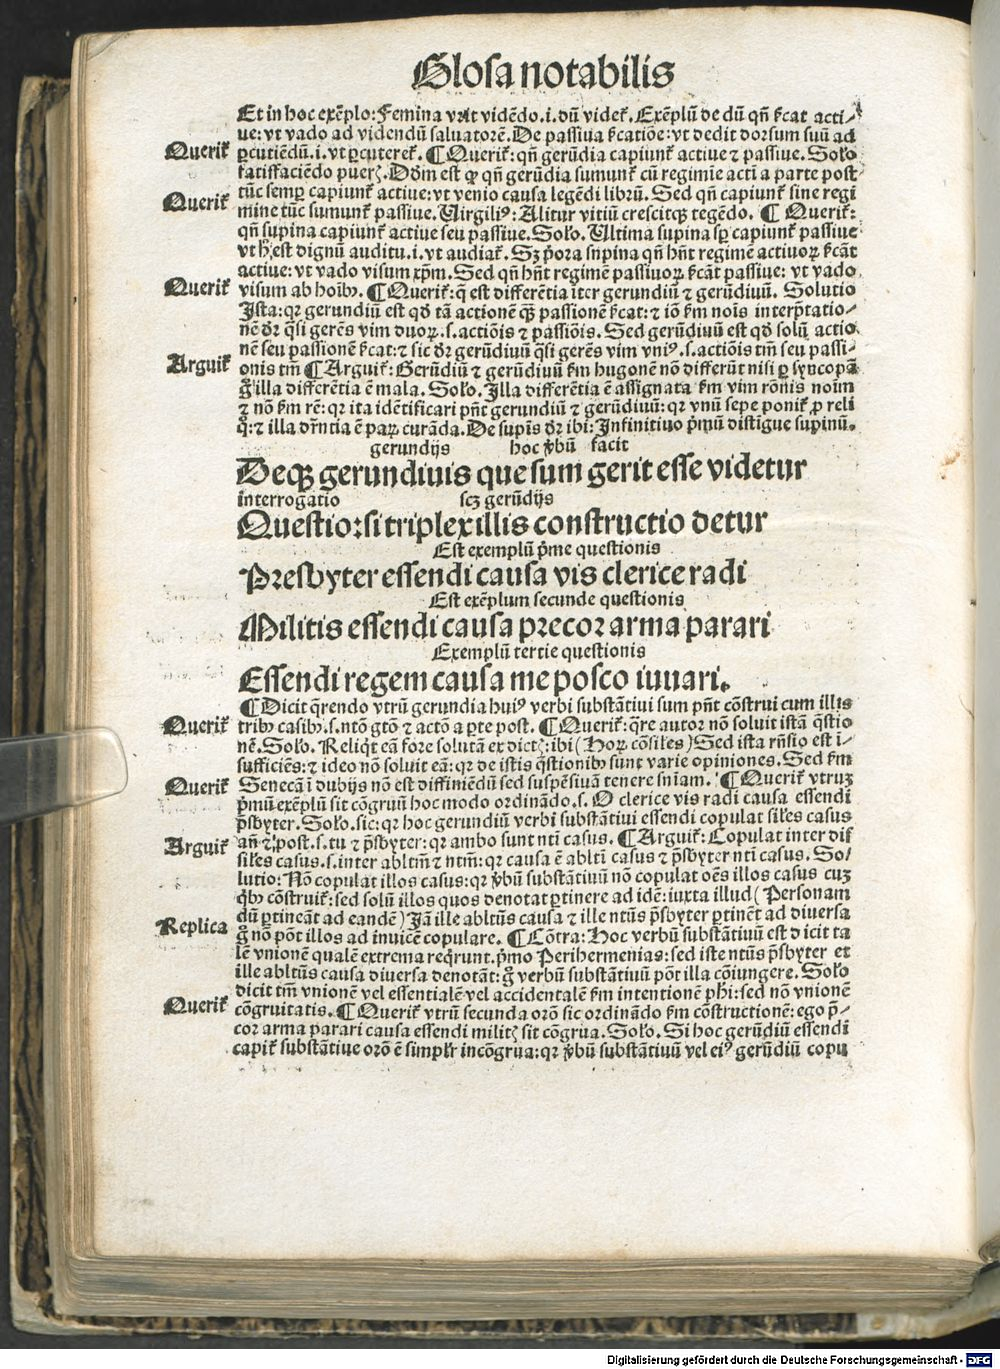 Glosa notabilis
Et in hoc exẽplo: Femina vrit vidẽdo .i. dũ videt᷑. Exẽplũ de dũ qñ ſc̃at acti⸗
ue: vt vado ad videndũ saluatorẽ. De paſſiua ſc̃atiõe: vt dedit dorsum suũ ad
Querit᷑ ꝑcutiẽdũ .i. vt ꝑcuteret᷑. ¶ Querit᷑: qñ gerũdia capiunt᷑ actiue ⁊ paſſiue. Solo
ſatiſfaciẽdo pueꝝ. Dõm est ꝙ qñ gerũdia sumunt᷑ cũ regimie acti a parte post
Querit᷑ tũc semꝑ capiunt᷑ actiue: vt venio causa legẽdi librũ. Sed qñ capiunt᷑ sine regi
mine tũc sumunt᷑ paſſiue. Virgiliꝰ: Alitur vitiũ crescitqꝫ tegẽdo. ¶ Querit᷑:
qñ supina capiunt᷑ actiue seu paſſiue. Solo. Ultima supina sꝑ capiunt᷑ paſſiue
vt h̃ est dignũ auditu .i. vt audiat᷑. Sꝫ p̃ora snpina qñ hñt regimẽ actiuoꝝ ſc̃ãt
actiue: vt vado visum xp̃m. Sed qñ hñt regimẽ paſſiuoꝝ ſc̃ãt paſſiue: vt vado
Querit᷑ visum ab hoĩbꝰ. ¶ Querit᷑: q̃ est differẽtia ĩter gerundiũ ⁊ gerũdiuũ. Solutio
Ista: qꝛ gerundiũ est qđ tã actionẽ qꝫ paſſionẽ ſc̃at: ⁊ iõ ſm nois interp̃tatio⸗
nẽ dr̃ q̃si gerẽs vim duoꝝ .s. actiõis ⁊ paſſiõis. Sed gerũdiuũ est qđ solũ actio
nẽ seu paſſionẽ ſc̃at: ⁊ sic dr̃ gerũdiuũ q̃si gerẽs vim vniꝰ .s. actiõis tm̃ seu paſſi⸗
Arguit᷑ onis tm̃ ¶ Arguit᷑: Gerũdiũ ⁊ gerũdiuũ ſm hugonẽ nõ differũt nisi ꝑ syncopã
g̃ illa differẽtia ẽ mala. Solo. Illa differẽtia ẽ assignata ſm vim rõnis noim
⁊ nõ ſm rẽ: qꝛ ita idẽtificari pñt gerundiũ ⁊ gerũdiuũ: qꝛ vnũ sepe ponit᷑ ꝓ reli
q̃: ⁊ illa dr̃ntia ẽ paꝝ curãda. De supĩs dr̃ ibi: Infinitiuo p̃mũ distĩgue supinũ.
gerundijs hoc ṽbũ facit
Deqꝫ gerundiuis que sum gerit esse videtur
interrogatio scꝫ gerũdijs
Questio: si triplex illis constructio detur
Est exemplũ p̃me questionis
Presbyter essendi causa vis clerice radi
Est exẽplum secunde questionis
Militis essendi causa precor arma parari
Exemplũ tertie questionis
Essendi regem causa me posco iuuari.
¶ Dicit q̃rendo vtrũ gerundia huiꝰ verbi substãtiui sum pñt cõstrui cum illis
Querit᷑ tribꝰ casibꝰ .s. ntõ gtõ ⁊ actõ a ꝑte post. ¶ Querit᷑: q̃re autor nõ soluit istã q̃stio
nẽ. Solo. Reliq̃t eã fore solutã ex dict̃: ibi (Hoꝝ cõsiles) Sed ista rñsio est i⸗
sufficiẽs: ⁊ ideo nõ soluit eã: qꝛ de istis q̃stionibꝰ sunt varie opiniones. Sed ſm
Querit᷑ Senecã ĩ dubijs nõ est diffiniẽdũ sed suspẽsiuã tenere sniam. ¶ Querit᷑ vtruꝫ
p̃mũ exẽplũ sit cõgruũ hoc modo ordinãdo .s. O clerice vis radi causa essendi
p̃sbyter. Solo. sic: qꝛ hoc gerundiũ verbi substãtiui essendi copulat siles casus
Arguit᷑ añ ⁊ post .s. tu ⁊ p̃sbyter: qꝛ ambo sunt nti casus. ¶ Arguit᷑: Copulat inter dis
siles casus .s. inter abltm̃ ⁊ ntm̃: qꝛ causa ẽ abltĩ casus ⁊ p̃sbyter nti casus. So⸗
lutio: Nõ copulat illos casus: qꝛ ṽbũ substãtiuũ nõ copulat oẽs illos casus cuꝫ
q̃bꝰ cõstruit᷑: sed solũ illos quos denotat ꝑtinere ad idẽ: iuxta illud (Personam
dũ ꝑtineãt ad eandẽ) Jã ille abltũs causa ⁊ ille ntũs p̃sbyter ꝑtinẽt ad diuersa
Replica g̃ nõ põt illos ad inuicẽ copulare. ¶ Cõtra: Hoc verbũ substãtiuũ est dicit ta
lẽ vnionẽ qualẽ extrema req̃runt. p̃mo Perihermenias: sed iste ntũs p̃sbyter et
ille abltũs causa diuersa denotãt: g̃ verbũ substãtiuũ põt illa cõiungere. Solo
dicit tm̃ vnionẽ vel essentialẽ vel accidentalẽ ſm intentionẽ pħi: sed nõ vnionẽ
Querit᷑ cõgruitatis. ¶ Querit᷑ vtrũ secunda orõ sic ordinãdo ſm cõstructionẽ: ego p̃⸗
cor arma parari causa essendi milit̃ sit cõgrua. Solo. Si hoc gerũdiũ essendi
capit᷑ substãtiue orõ ẽ simpłr incõgrua: qꝛ ṽbũ substãtiuũ vel eiꝰ gerũdiũ copu
Digitalisierung gefördert durch die Deutsche Forschungsgemeinschaft - DFG